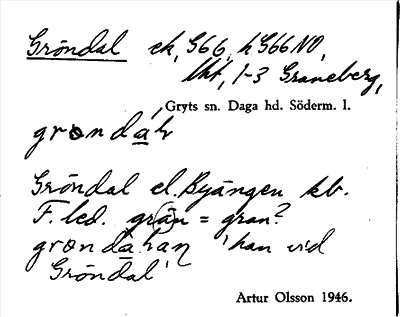 Gröndal ek, S66, h S66 NO,
lht, 1-3 Graneberg,
Gryts sn. Daga hd. Söderm. l.
grøndáɫ
Gröndal el. Byängen kb.
F. led. grän = gran?
grøndahan 'han vid
Gröndal'
Artur Olsson 1946.